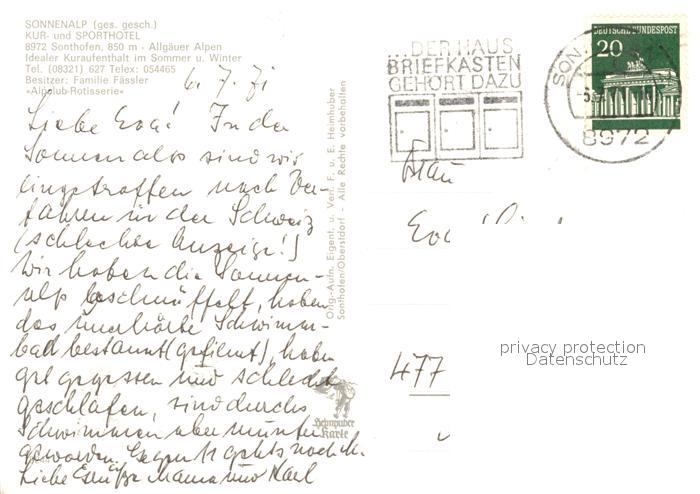 SONNENALP (ges. gesch.)
KUR- und SPORTHOTEL
8972 Sonthofen, 850 m - Allgäuer Alpen
Idealer Kuraufenthalt im Sommer u. Winter
Tel. (08321) 627 Telex: 054465
Besitzer: Familie Fässler
»Alpclub-Rotisserie«
6. 7. 71
Liebe Eva! In der
Sonnenalp sind wir
eingetroffen nach
fahren in der Schweiz
(schlechte Anzeige!)
Wir haben die Sonnen-
alp beschnüffelt, haben
das unerhörte Schwimm-
bad bestaunt (gefilmt), haben
gut gegessen und schlecht
geschlafen, sind durchs
Schwimmen aber munter
geworden. geht's noch
Liebe Grüße Mama und Karl
Orig.-Aufn. Eigent. u. Verl. F. u. E. Heimhuber
Sonthofen/Oberstdorf - Alle Rechte vorbehalten
Heimhuber
Karte
...DER HAUS
BRIEFKASTEN
GEHÖRT DAZU
DEUTSCHE BUNDESPOST
20
SON
8972
Frau
477
privacy protection
Datenschutz